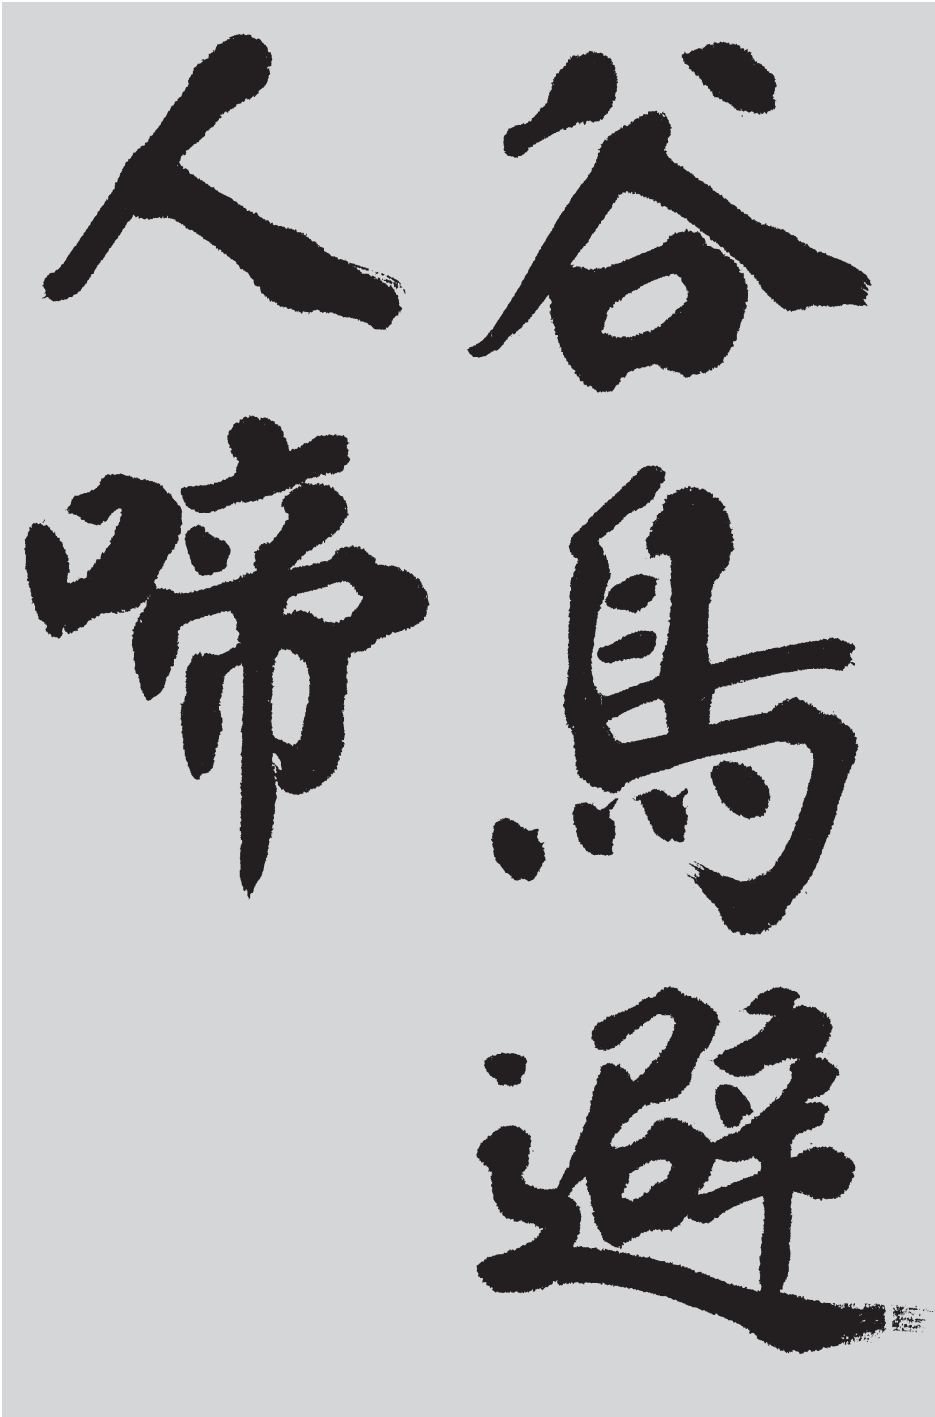 谷鳥避
人啼